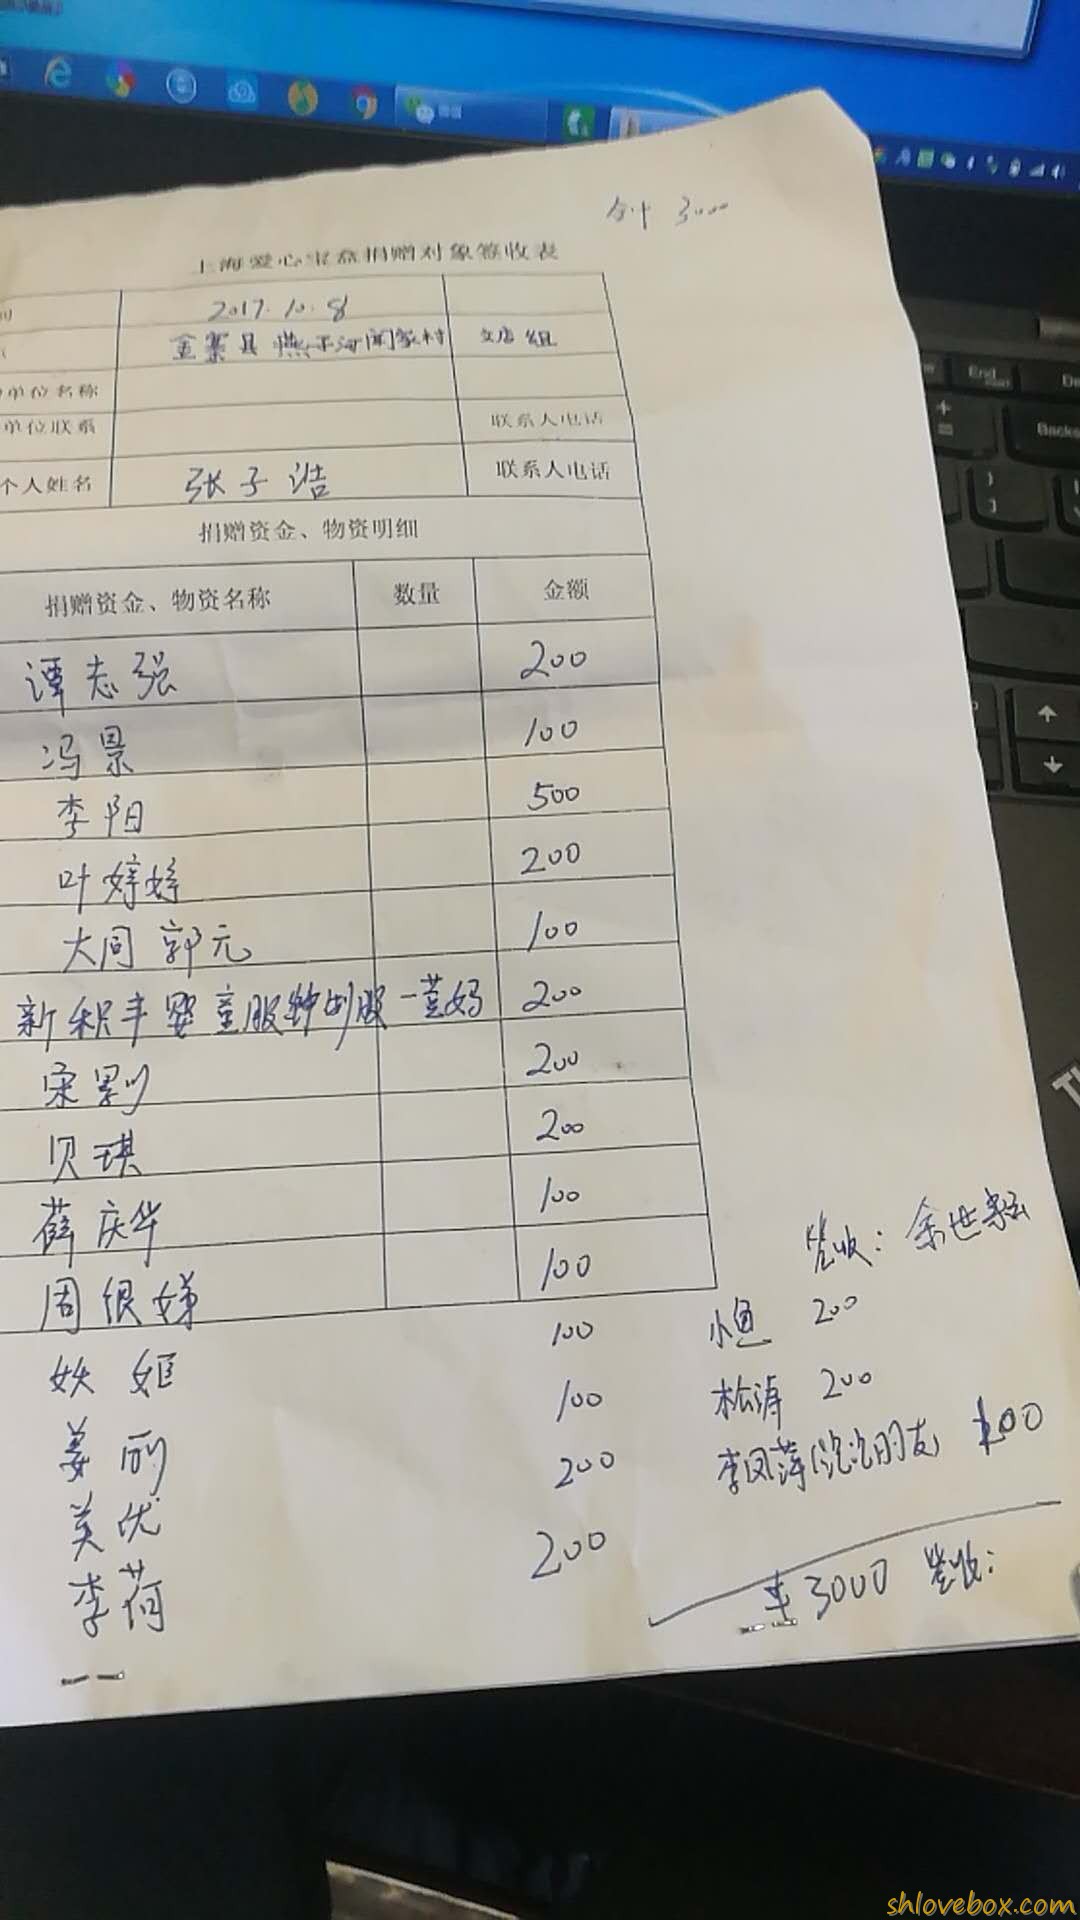 合计 3000
上海爱心宝盒捐赠对象签收表
2017.10.8
金寨县 燕子河闻家村 文店组
单位名称
单位联系 联系人电话
个人姓名 张子浩 联系人电话
捐赠资金、物资明细
捐赠资金、物资名称 数量 金额
谭志强 200
冯景 100
李阳 500
叶婷婷 200
大同 郭元 100
新积丰婴童服饰 一萱妈 200
宋 200
贝琪 200
薛庆华 100
周银娣 100
妖姬 100
姜丽 100
美优 200
李荷 200
签收: 余世
小鱼 200
松涛 200
李凤萍(沈沈朋友) 100
¥3000 签收:
End
Backs
shlovebox.com